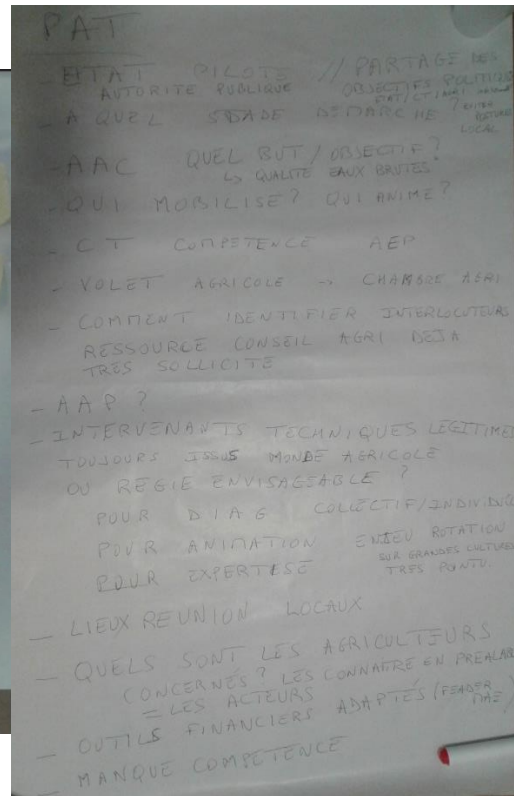 PAT
- ETAT PILOTE // PARTAGE DES
AUTORITE PUBLIQUE OBJECTIFS POLITIQUES
- A QUEL STADE DEMARCHE ? ENTRE
LOCAL
- AAC QUEL BUT / OBJECTIF ?
↳ QUALITE EAUX BRUTES
- QUI MOBILISE ? QUI ANIME ?
- CT COMPETENCE AEP
- VOLET AGRICOLE → CHAMBRE AGRI
- COMMENT IDENTIFIER INTERLOCUTEURS
RESSOURCE CONSEIL AGRI DEJA
TRES SOLLICITE
- AAP ?
- INTERVENANTS TECHNIQUES LEGITIMES
TOUJOURS ISSUS MONDE AGRICOLE
OU REGIE ENVISAGEABLE ?
POUR DIAG COLLECTIF/INDIVIDUEL
POUR ANIMATION ENJEU ROTATION
SUR GRANDES CULTURES
POUR EXPERTISE TRES POINTU.
- LIEUX REUNION LOCAUX
- QUELS SONT LES AGRICULTEURS
CONCERNES ? LES CONNAITRE EN PREALABLE
= LES ACTEURS
- OUTILS FINANCIERS ADAPTES (FEADER
MAE)
- MANQUE COMPETENCE